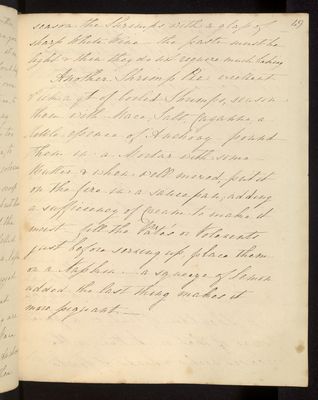 19
season the Shrimps with a glass of
sharp White Wine — the paste must be
light & then they do not require much baking
Another Shrimp Pie excellent
Pick a qt of boiled Shrimps, season
them with Mace, Salt, Cayenne, a
little essence of Anchovy — pound
them in a Mortar with some
Butter, & when well mixed, put it
on the fire in a saucepan, adding
a sufficiency of Cream to make it
moist fill the or Volovents
just before serving up, place them
on a Napkin — a squeeze of Lemon
added the last thing makes it
more piquant. —